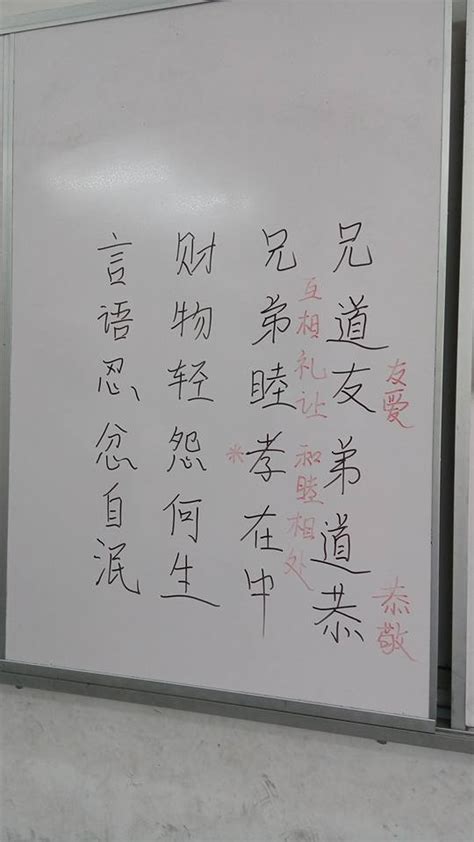 兄道友弟道恭
友爱
恭敬
互相礼让 和睦相处
兄弟睦孝在中
财物轻怨何生
言语忍忿自泯